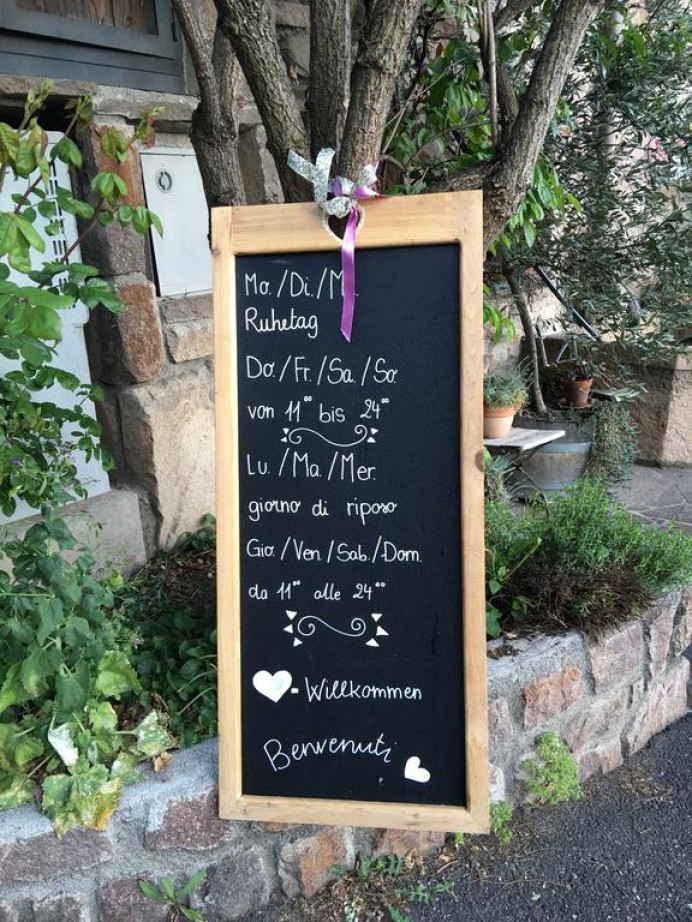 Mo./Di./M.
Ruhetag
Do./Fr./Sa./So.
von 11⁰⁰ bis 24⁰⁰
Lu./Ma./Mer.
giorno di riposo
Gio./Ven./Sab./Dom.
da 11⁰⁰ alle 24⁰⁰
-Willkommen
Benvenuti